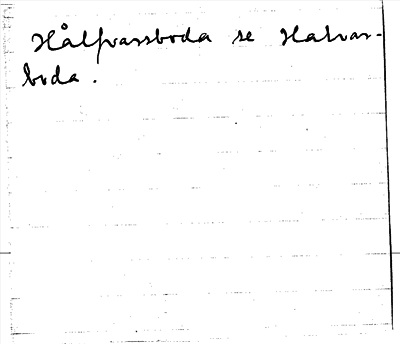 Hålfvarsboda se Halvar-
boda.